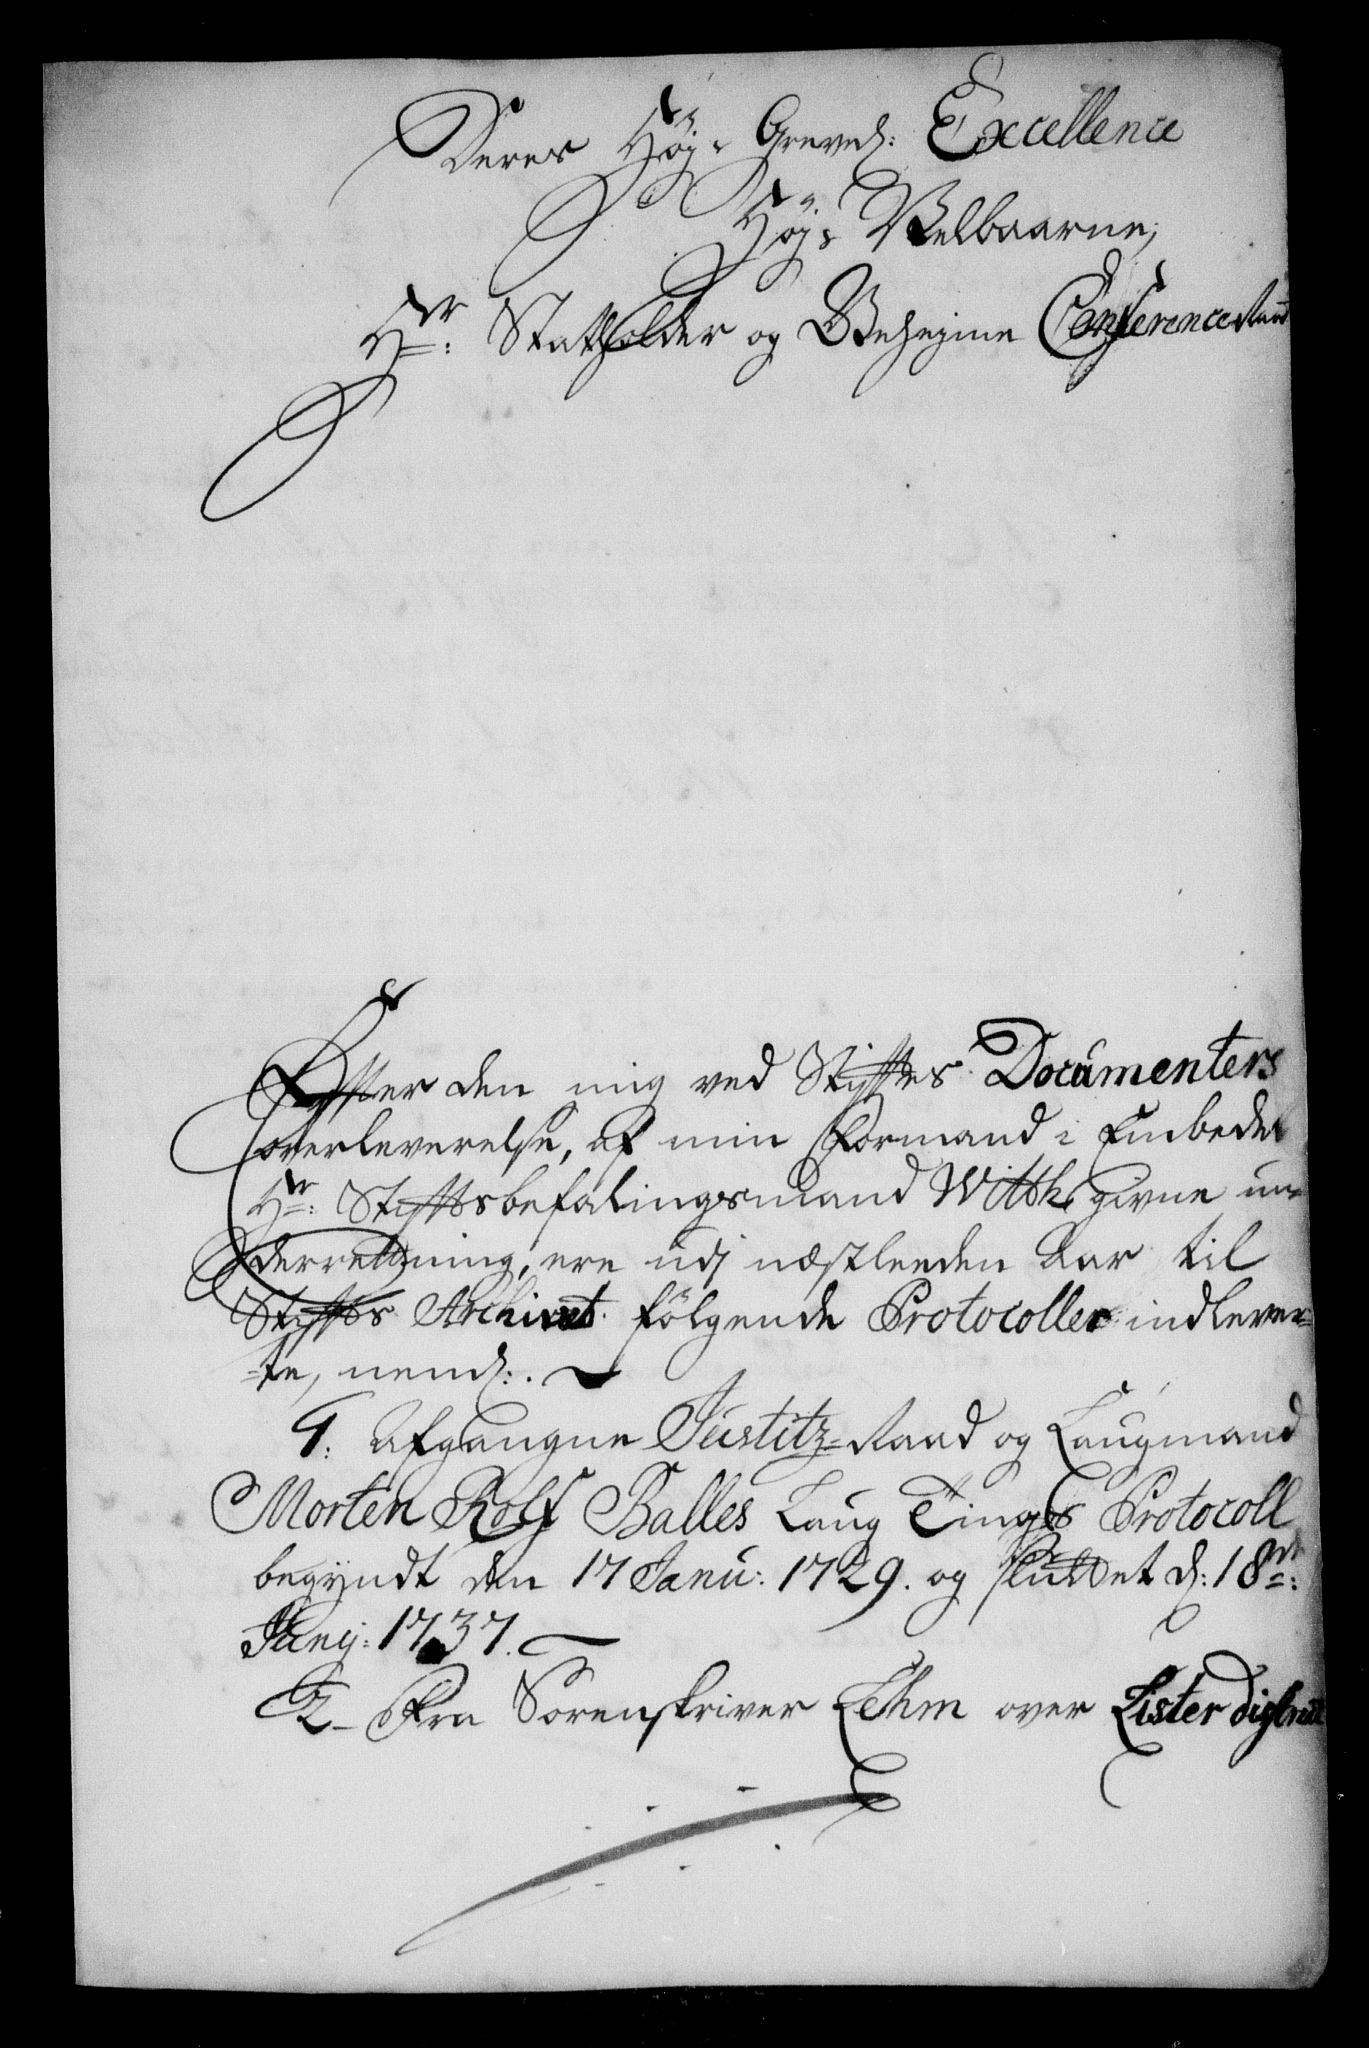 Deres Høj- Grevel: Excellence
Høj- Velbaarne,
Hr: Statholder og Geheime ConferenceRaad
Effter den mig ved Stifftes Documenters
overleverelse, af min Formand i Embedet
Hr: Stifftsbefalingsmand Witth givne un-
derrettning, ere udj næstleeden Aar til
Stiffts Archivet følgende Protocoller indlever-
-te, neml:
1: Afgangne Justitz-Raad og Laugmand
Morten Rolf Balles Laug Tings Protocoll
begyndt den 17 Janu: 1729. og sluttet d: 18de:
Junij: 1737.
2- Fra Sorenskriver Lehm over Lister district